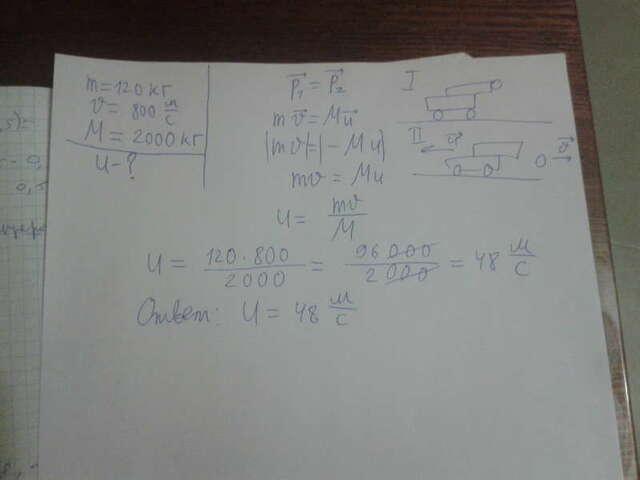 m = 120 кг
v = 800 м/с
M = 2000 кг
u - ?
P₁ = P₂
mv = Mu
|mv| = |- Mu|
mv = Mu
u = mv/M
I
II
u
v
u = 120·800/2000 = 96000/2000 = 48 м/с
Ответ: u = 48 м/с